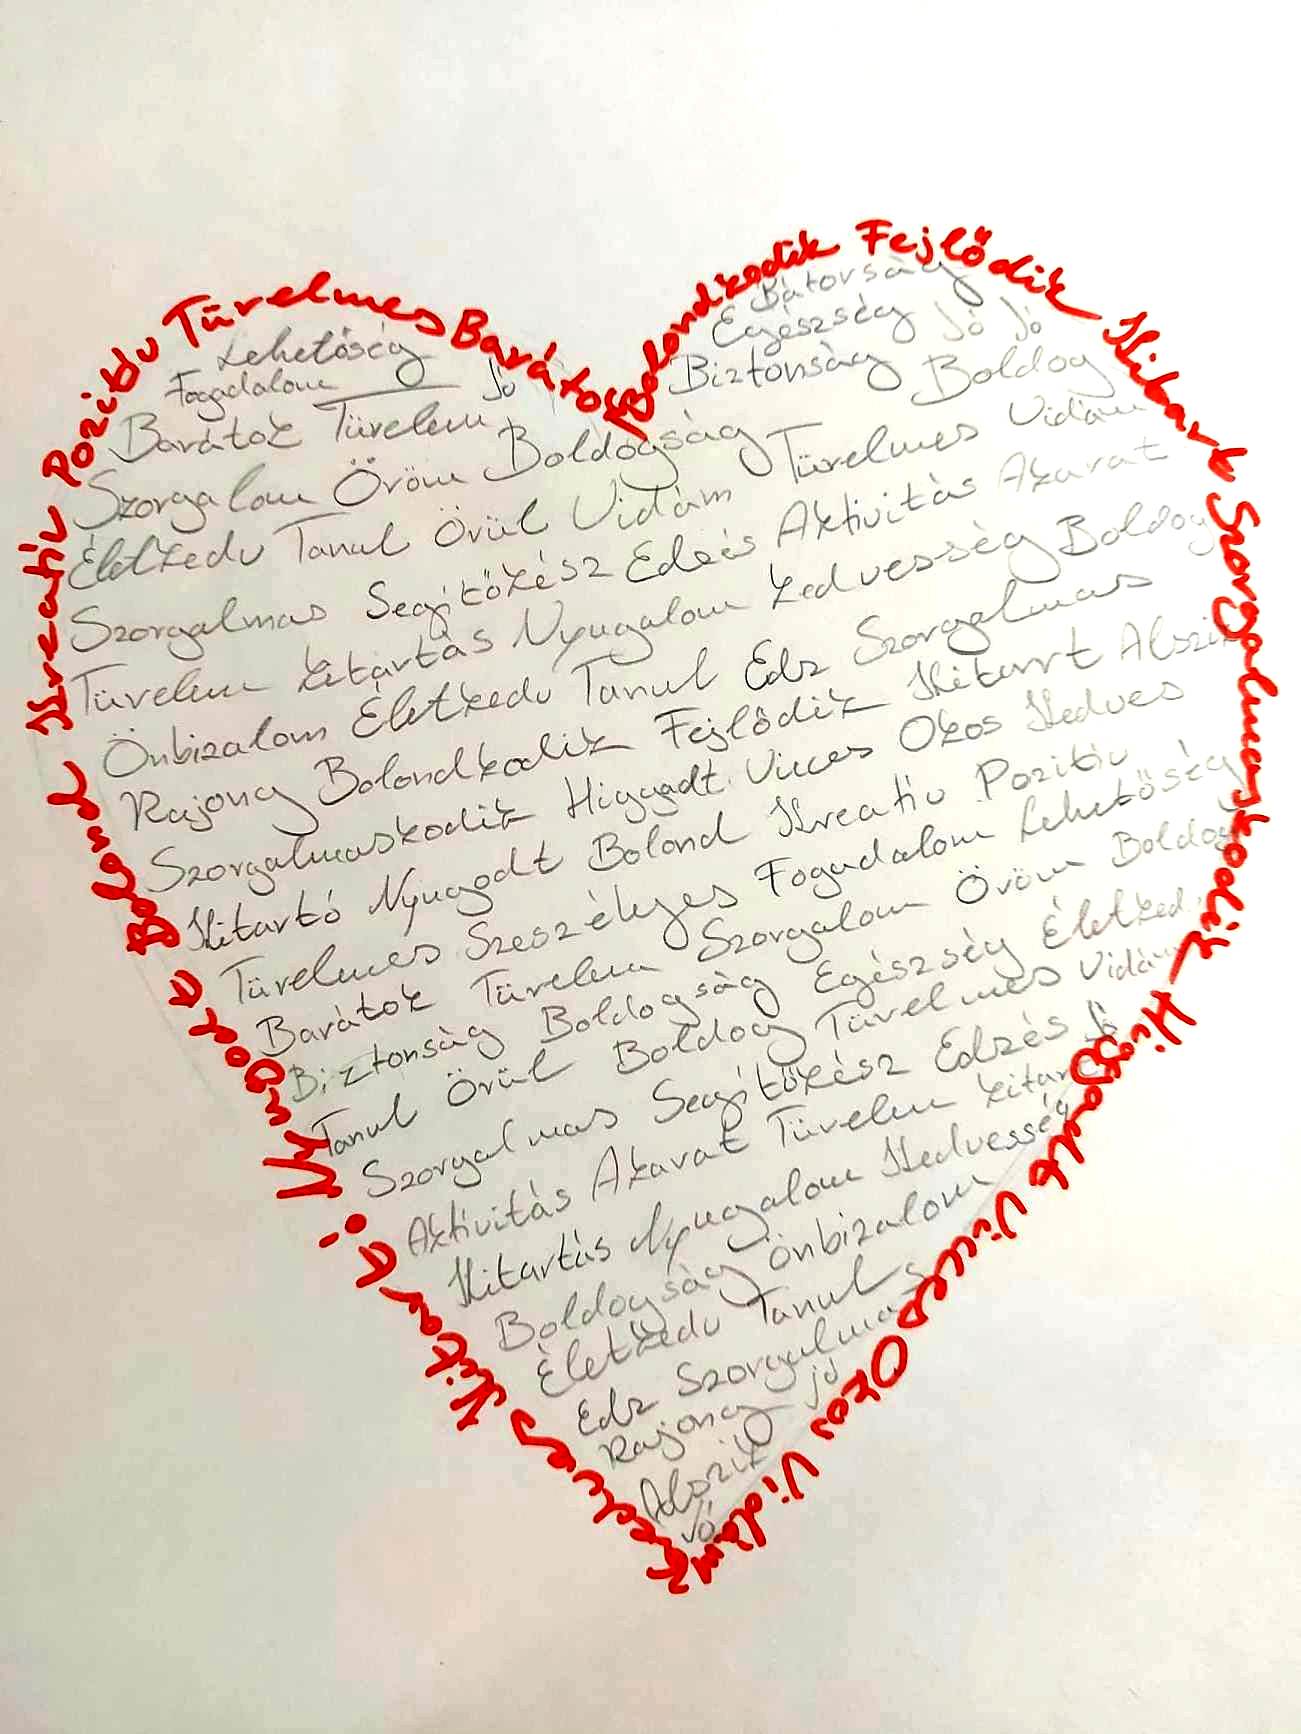 Kreatív Pozitív Türelmes Barátos
Bolondkodik Fejlődik Kitart Szorgalmaskodik Higgadt Vicces Okos Vidám
Kedves Kitart! Nyugodt Bolond
Lehetőség
Fogadalom
Jó
Barátok Türelem
Bátorság
Egészség Jó Jó
Biztonság Boldog
Szorgalom Öröm Boldogság Türelmes Vidám
Életkedv Tanul Örül Vidám
Szorgalmas Segítőkész Edzés Aktivitás Akarat
Türelem Kitartás Nyugalom Kedvesség Boldog
Önbizalom Életkedv Tanul Edz Szorgalmas
Rajong Bolondkodik Fejlődik Kitart Alszik
Szorgalmaskodik Higgadt Vicces Okos Kedves
Kitartó Nyugodt Bolond Kreatív Pozitív
Türelmes Szeszélyes Fogadalom Lehetőség
Barátok Türelem Szorgalom Öröm Boldog
Biztonság Boldogság Egészség Életked.
Tanul Örül Boldog Türelmes Vidám
Szorgalmas Segítőkész Edzés Jó
Aktivitás Akarat Türelem Kitart
Kitartás Nyugalom Kedvesség
Boldogság Önbizalom
Életkedv Tanul
Edz Szorgalmas
Rajong jó
Alszik
Jó